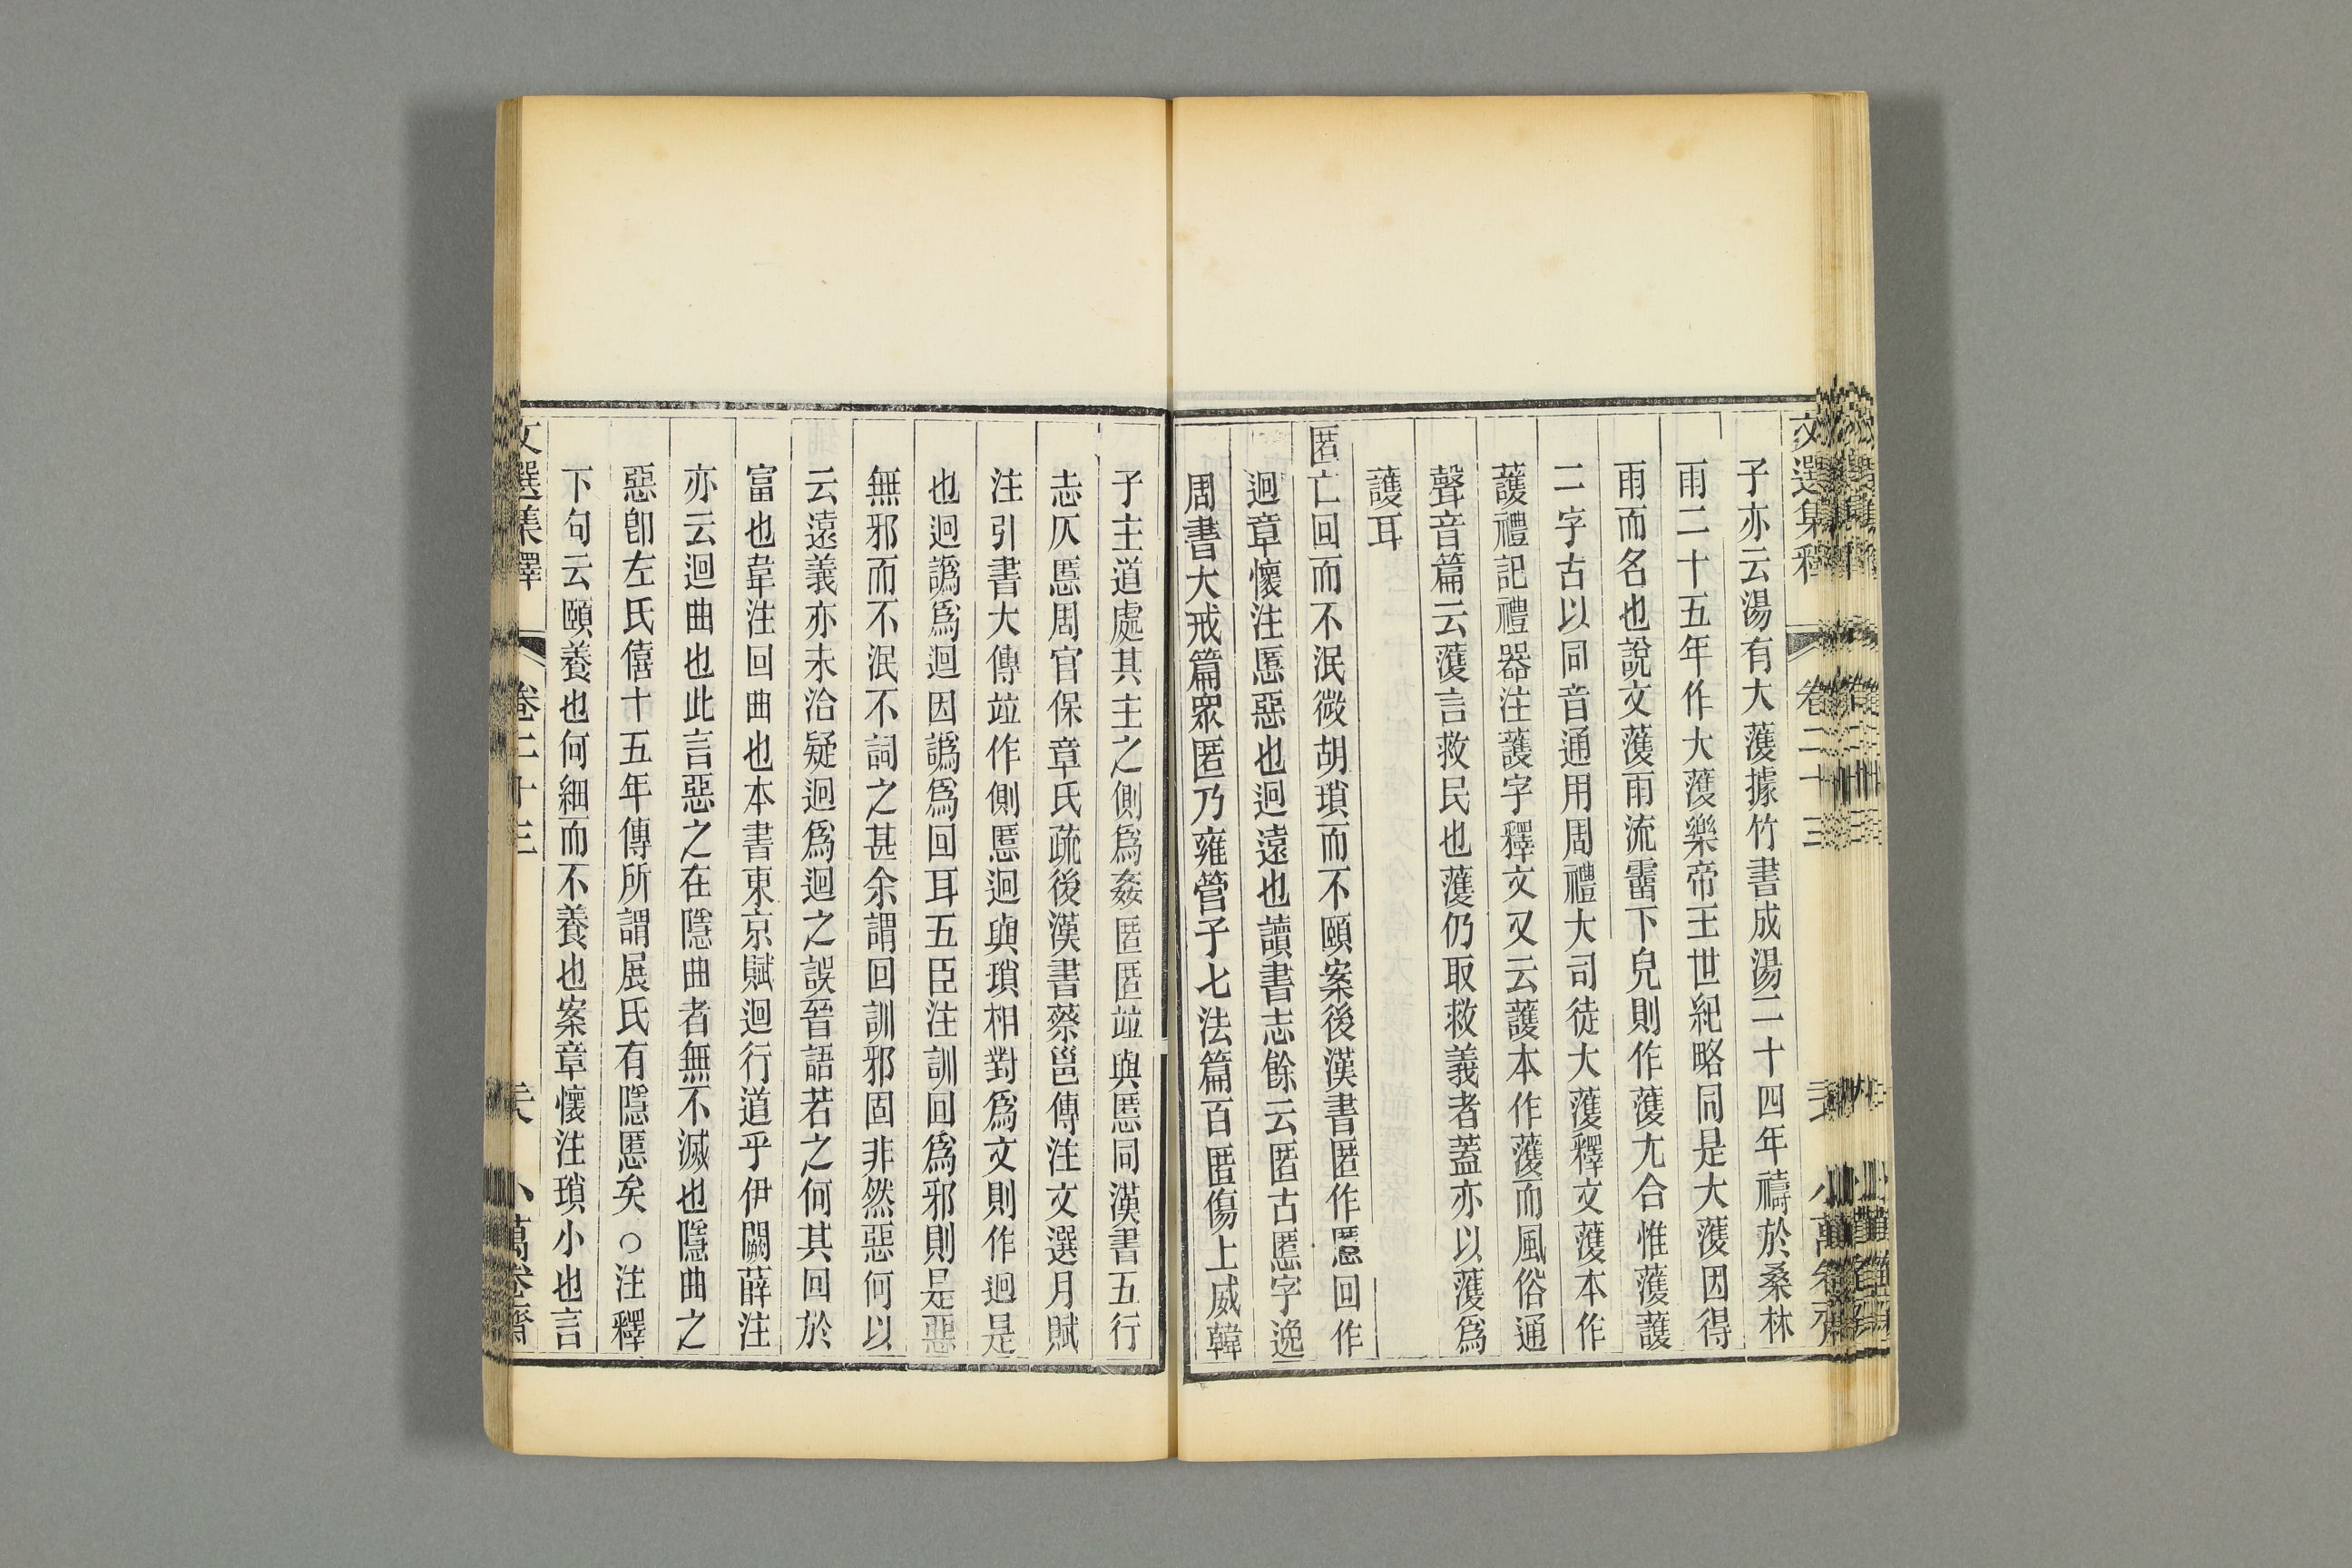 文選集釋 卷二十三
子亦云湯有大濩據竹書成湯二十四年禱於桑林
雨二十五年作大濩樂帝王世紀略同是大濩因得
雨而名也說文濩雨流霤下皃則作濩尤合惟濩頀
二字古以同音通用周禮大司徒大濩釋文濩本作
頀禮記禮器注頀字釋文又云頀本作濩而風俗通
聲音篇云濩言救民也濩仍取救義者蓋亦以濩爲
頀耳
匿亡回而不泯微胡瑣而不頤案後漢書匿作慝回作
迴章懷注慝惡也迴遠也讀書志餘云匿古慝字逸
周書大戒篇眾匿乃雍管子七法篇百匿傷上威韓
子主道處其主之側爲姦匿匿竝與慝同漢書五行
志仄慝周官保章氏疏後漢書蔡邕傳注文選月賦
注引書大傳竝作側慝迴與瑣相對爲文則作迴是
也迴譌爲迴因譌爲回耳五臣注訓回爲邪則是惡
無邪而不泯不詞之甚余謂回訓邪固非然惡何以
云遠義亦未洽疑迴爲迴之誤晉語若之何其回於
富也韋注回曲也本書東京賦迴行道乎伊闕薛注
亦云迴曲也此言惡之在隱曲者無不滅也隱曲之
惡卽左氏僖十五年傳所謂展氏有隱慝矣○注釋
下句云頤養也何細而不養也案章懷注瑣小也言
文選集釋 卷二十三 小萬卷齋